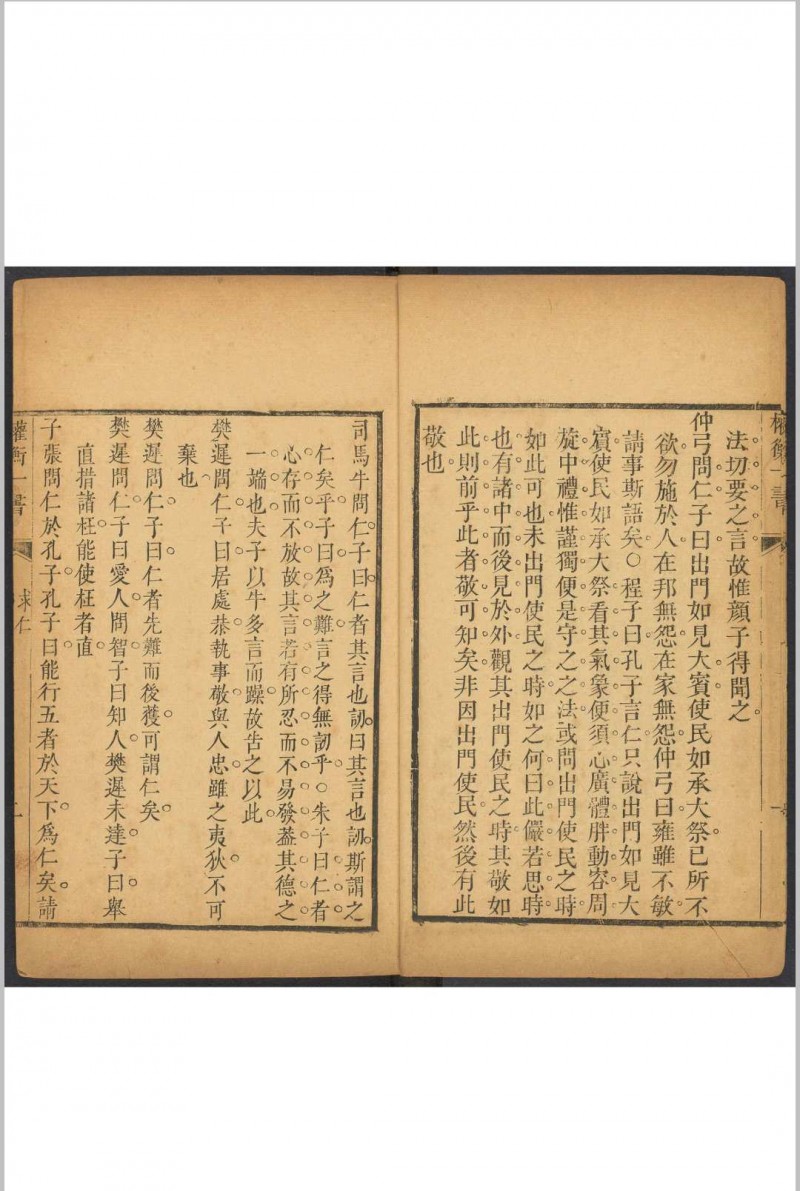 權衡一書
法切要之言故惟顔子得聞之
仲弓問仁子曰出門如見大賓使民如承大祭已所不
欲勿施於人在邦無怨在家無怨仲弓曰雍雖不敏
請事斯語矣○程子曰孔子言仁只說出門如見大
賓使民如承大祭看其氣象便須心廣體胖動容周
旋中禮惟謹獨便是守之之法或問出門使民之時
如此可也未出門使民之時如之何曰此儼若思時
也有諸中而後見於外觀其出門使民之時其敬如
此則前乎此者敬可知矣非因出門使民然後有此
敬也
司馬牛問仁子曰仁者其言也訒曰其言也訒斯謂之
仁矣乎子曰爲之難言之得無訒乎○朱子曰仁者
心存而不放故其言若有所忍而不易發葢其德之
一端也夫子以牛多言而躁故告之以此
樊遲問仁子曰居處恭執事敬與人忠雖之夷狄不可
棄也
樊遲問仁子曰仁者先難而後獲可謂仁矣
樊遲問仁子曰愛人問智子曰知人樊遲未達子曰舉
直措諸枉能使枉者直
子張問仁於孔子孔子曰能行五者於天下爲仁矣請
權衡一書
求仁
二